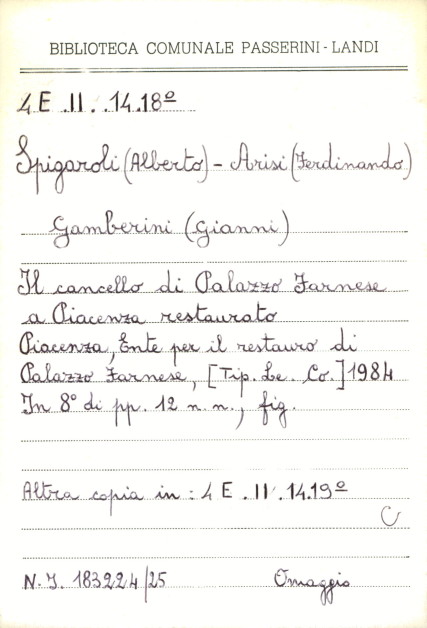 BIBLIOTECA COMUNALE PASSERINI-LANDI
4 E . II . 14.18º
Spigaroli (Alberto) - Arisi (Ferdinando)
Gamberini (Gianni)
Il cancello di Palazzo Farnese
a Piacenza restaurato
Piacenza, Ente per il restauro di
Palazzo Farnese, [Tip. Le. Co.] 1984
In 8° di pp. 12 n. n., fig.
Altra copia in : 4 E . II . 14.19º
C
N. I. 183224/25 Omaggio